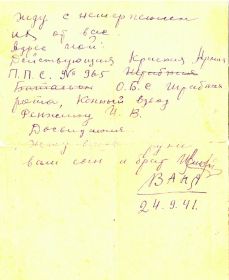 Жду с нетерпением
от вас
Адрес мой:
Действующая Красная Армия
П.П.С. № 365
Батальон О.Б.С. Штабная
рота, Конный взвод
В.
Досвидания.
Жму
ваш сын и брат
ВАНЯ
24.9.41.